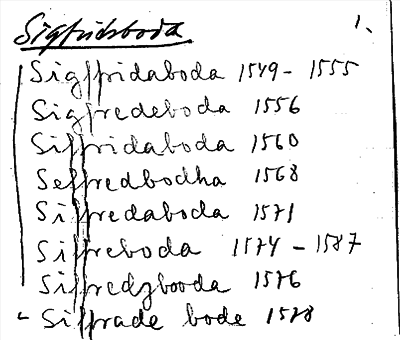 Sigfridsboda 1.
Sigffridaboda 1549 - 1555
Sigfredeboda 1556
Siffridaboda 1560
Selfredbodha 1568
Siffredaboda 1571
Siffreboda 1574 - 1587
Siffredzbooda 1576
Siffrade bode 1578